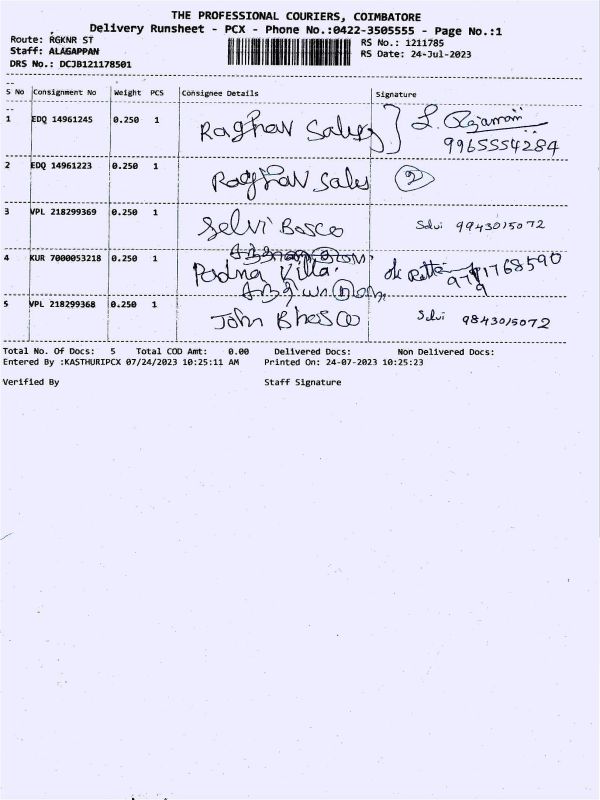 THE PROFESSIONAL COURIERS, COIMBATORE
Delivery Runsheet - PCX - Phone No.:0422-3505555 - Page No.:1
Route: RGKNR ST
RS No.: 1211785
Staff: ALAGAPPAN
RS Date: 24-Jul-2023
DRS No.: DCJB121178501
S No Consignment No Weight PCS Consignee Details Signature
1 EDQ 14961245 0.250 1 Raghav Sales L. Rajamani
9965554284
2 EDQ 14961223 0.250 1 Raghav Sales 2
3 VPL 218299369 0.250 1 Selvi Bosco Selvi 9943015072
4 KUR 7000053218 0.250 1 Padma Villa. ok
5 VPL 218299368 0.250 1 John Bhosco Selvi 9843015072
Total No. Of Docs: 5 Total COD Amt: 0.00 Delivered Docs: Non Delivered Docs:
Entered By :KASTHURIPCX 07/24/2023 10:25:11 AM Printed On: 24-07-2023 10:25:23
Verified By Staff Signature